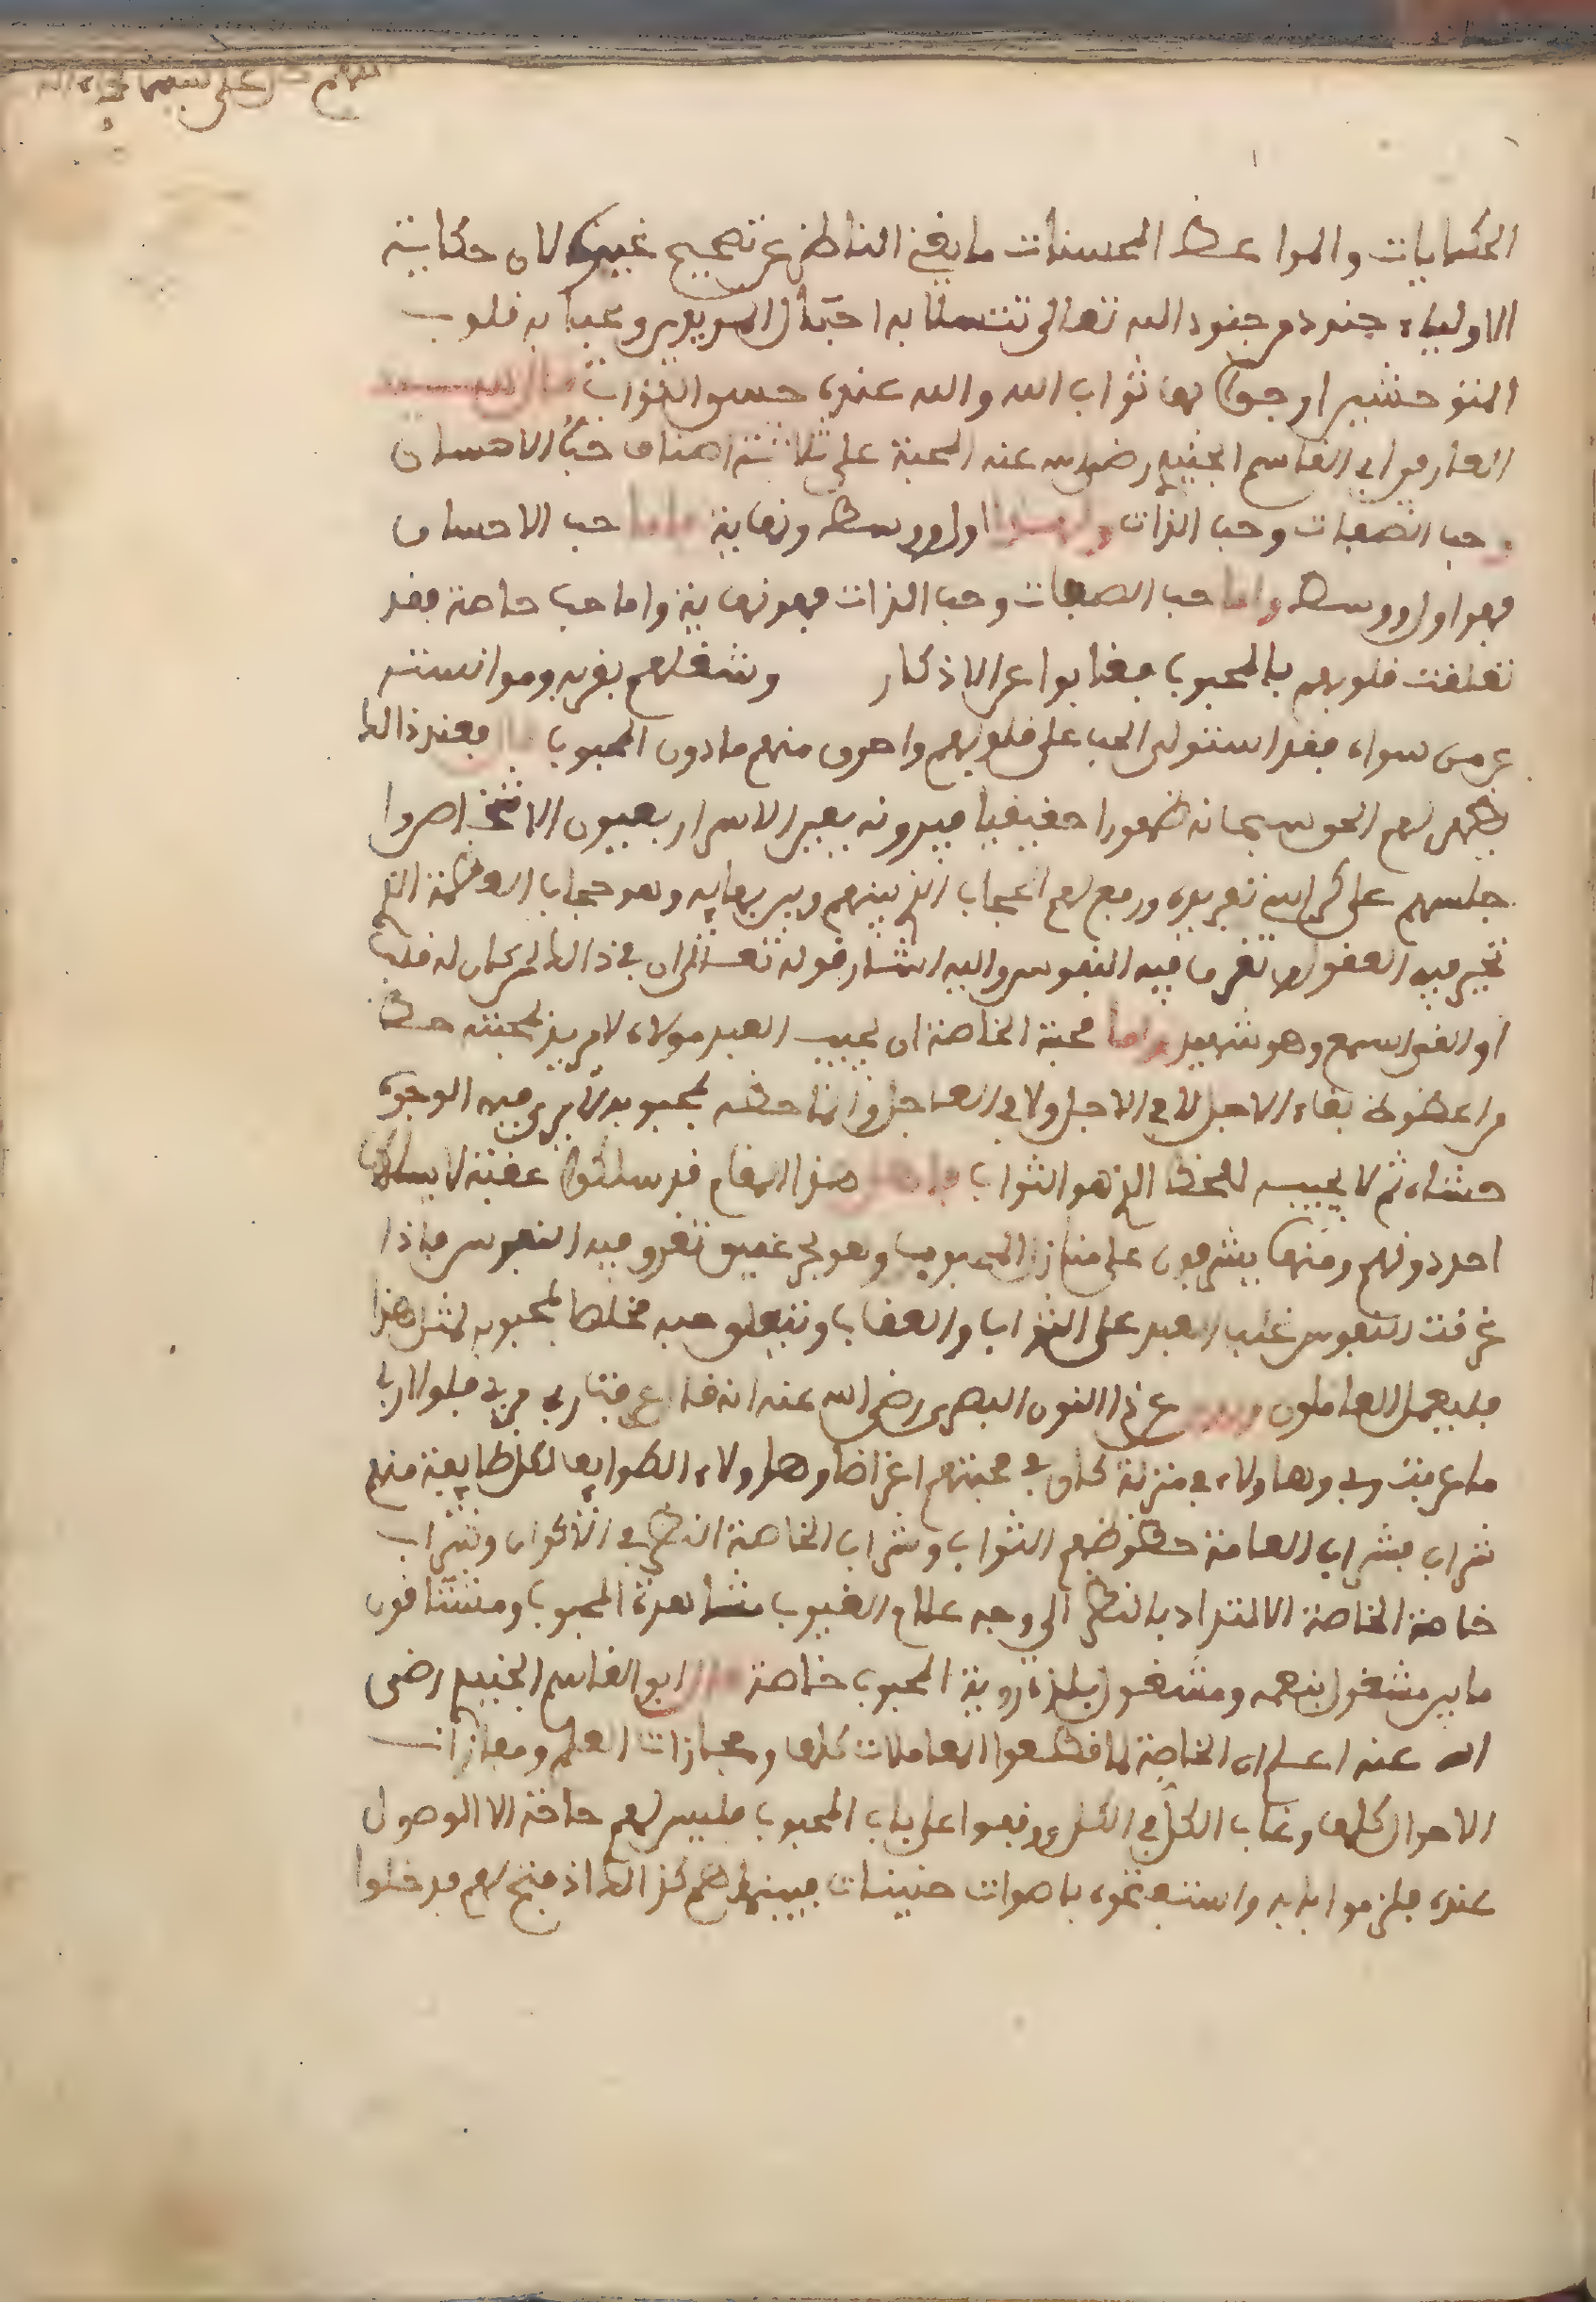 اللهم صل على سيدنا محمد
الحكايات والمواعظ المحسنات ما يغني الناظر عن تصحيح غيره لان حكاية
الاولياء جند من جنود الله تعالى به احبال المريدين به قلوب
المتوحشين ارجوا بها ثواب الله والله عنده حسن الثواب قال
العارفين ابي القاسم الجنيد رضي الله عنه المحبة على ثلاثة اصناف حب الاحسان
و حب الصفات وحب الذات اول ووسط ونهاية فاما حب الاحسان
فهو اول ووسط واما حب الصفات وحب الذات فهو نهاية واما حب خاصة فقد
تعلقت قلوبهم بالمحبوب فغابوا عن الاذكار وشغلهم بقربه وموانسته
عن من سواه فقد استولى الحب على قلوبهم واحرق منهم ما دون المحبوب قال فعند ذالك
يظهر لهم الحق سبحانه ظهورا حقيقيا فيرونه بعين الاسرار بعيون
جلسهم على كراسي تفريده ورفع لهم الحجاب الذي بينهم وبين وهو حجاب العظمة التي
تحير فيه العقول و فيه النفوس واليه اشار قوله تعلى ان في ذالك لمن كان له قلب
او القى السمع وهو شهيد واما محبة الخاصة ان يحب العبد مولاه لا يريد بمحبته حظا
من الحظوظ لا في الاجل ولا في العاجل وانما حظه محبوبه الوجود
حشاه ثم لا يحبه للحظ الذي هو الثواب هذا المقام قد سلكوا عقبة لا يسلكها
احد دونهم ومنها يشرفون على منازل المحبوب وهو بحر عميق تغرق فيه النفوس فاذا
غرقت النفوس غاب العبد على الثواب والعقاب حبه مخلصا لمحبوبه لمثل هذا
فليعمل العاملون عن ذا النون البصري رضي الله عنه انه قال عرفت ربي بربي فلولا ربي
ما عرفت ربي وهاولاء في منزلة في محبتهم اغراضا وهاولاء الطوايف لكل طايفة منهم
شراب فشراب العامة حظوظهم الثواب وشراب الخاصة النظر في الاكوان وشراب
خاصة الخاصة الالتذاذ بالنظر الى وجه علام الغيوب مشاهدة المحبوب ومشتاقون
ما بين مشغول بنعمه ومشغول بلذة روية المحبوب خاصة قال ابو القاسم الجنيد رضي
الله عنه اعلم ان الخاصة لما قطعوا المعاملات كلها ومجازات العلم ومفازات
الاحوال كلها وغاب الكل في الكل ووقفوا على باب المحبوب فليس لهم حاجة الا الوصول
عنده فلزموا بابه باصوات حنينات فبينما هم كذالك اذ فتح لهم فدخلوا